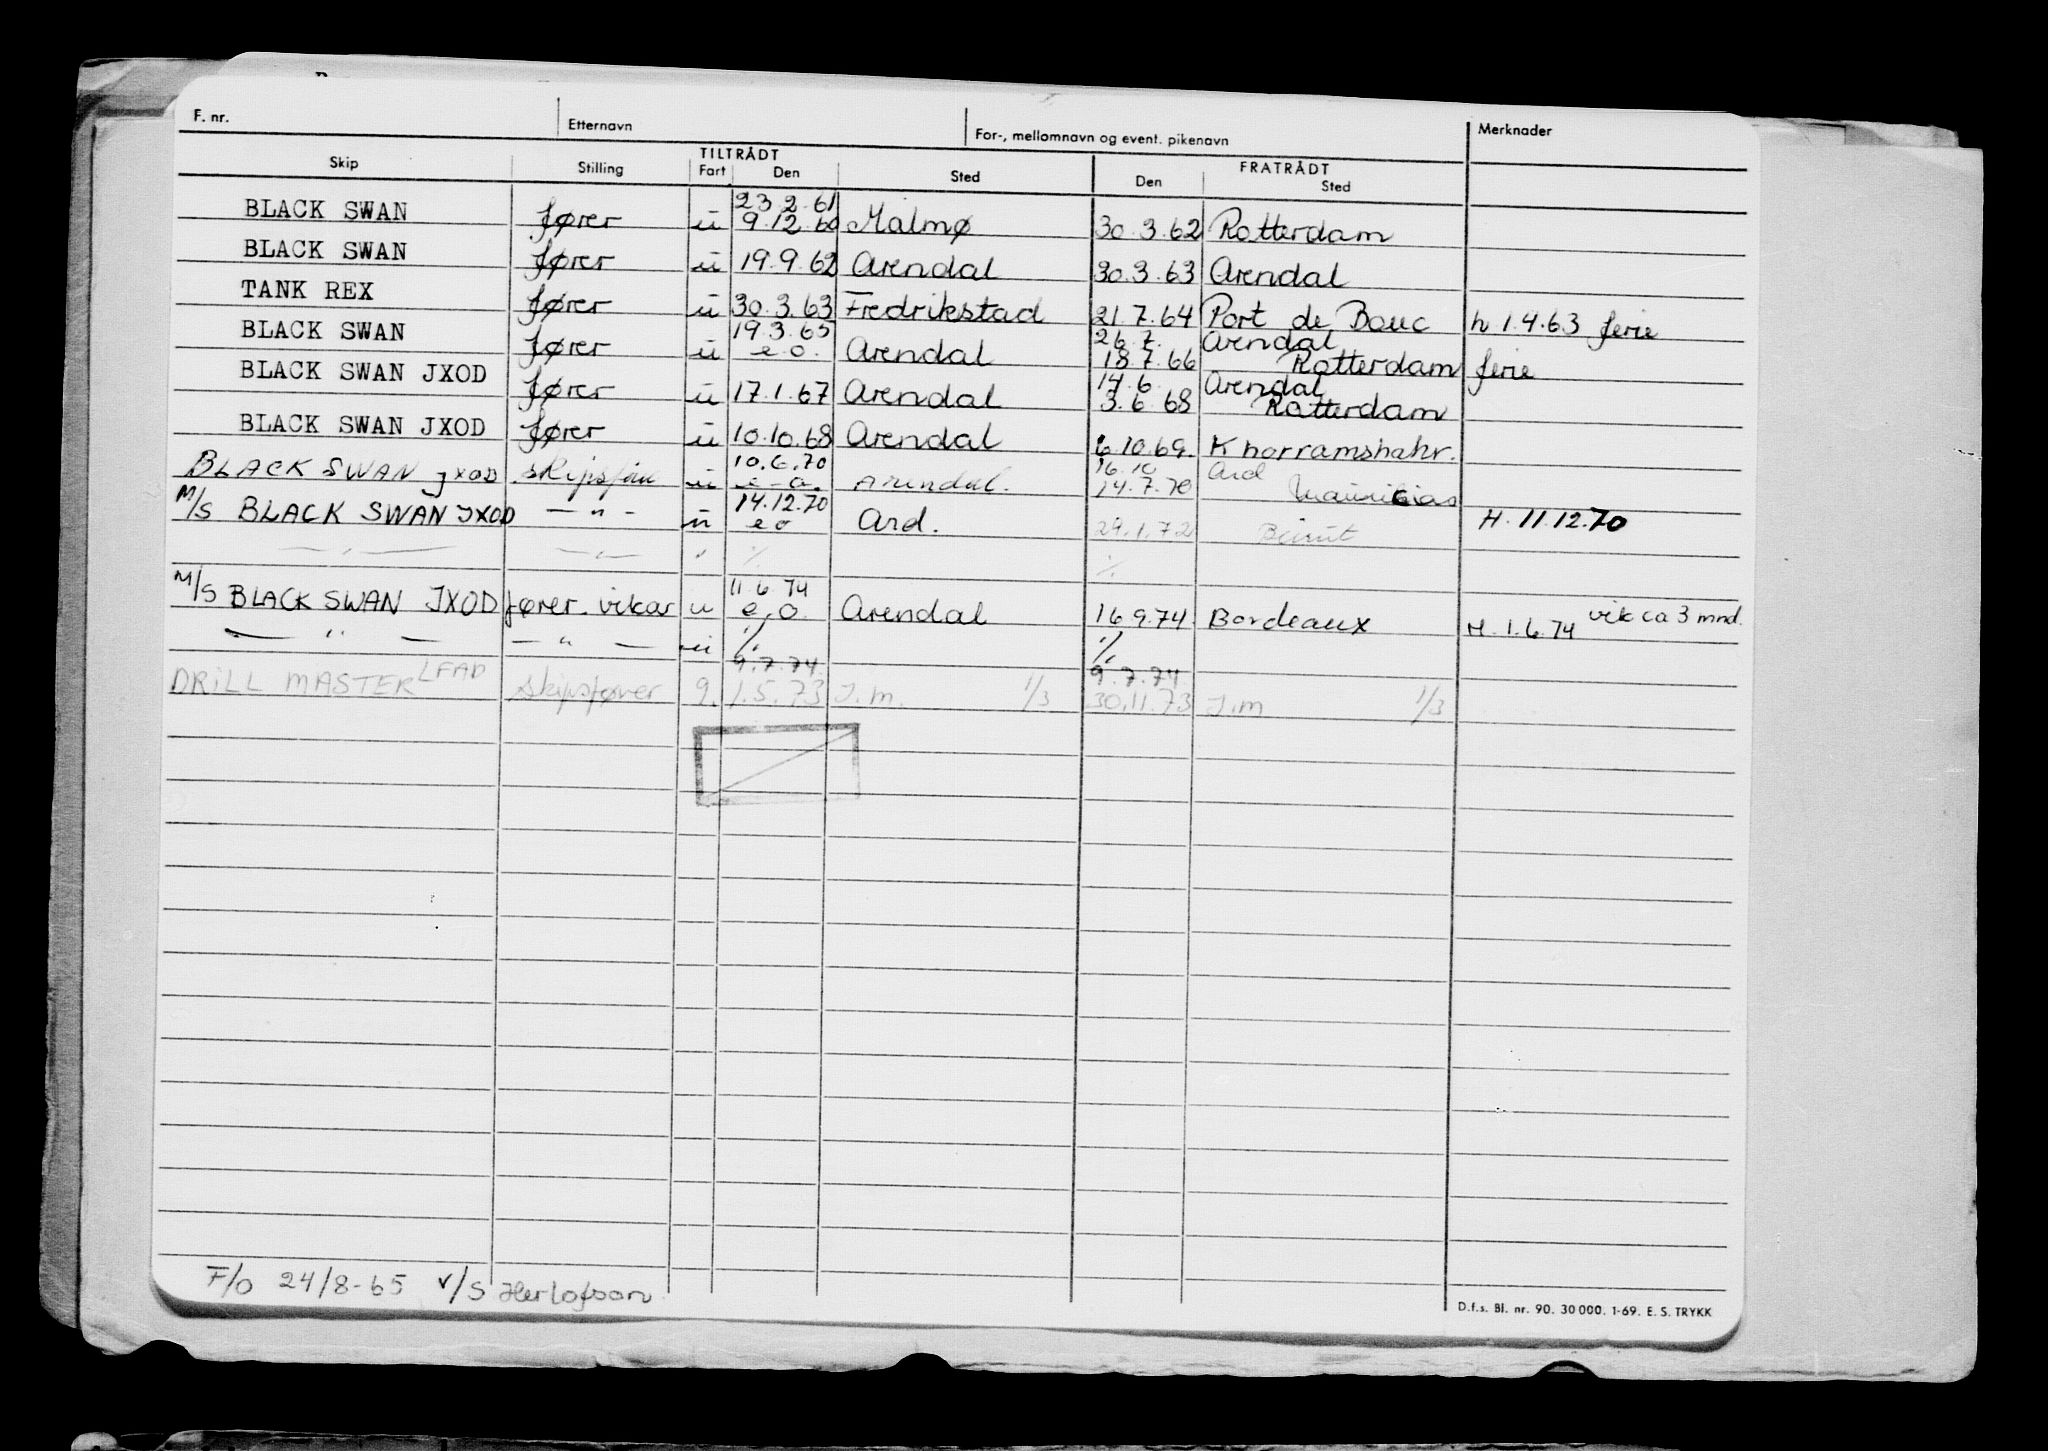 F. nr. Etternavn For-, mellomnavn og event. pikenavn Merknader
TILTRÅDT FRATRÅDT
Skip Stilling Fart Den Sted Den Sted
23.2.61
BLACK SWAN fører u 9.12.60 Malmø 30.3.62 Rotterdam
BLACK SWAN fører u 19.9.62 Arendal 30.3.63 Arendal
TANK REX fører u 30.3.63 Fredrikstad 21.7.64 Port de Bouc h 1.4.63 ferie
19.3.65 26.7. Arendal
BLACK SWAN fører u e.o. Arendal 18.7.66 Rotterdam ferie
14.6. Arendal
BLACK SWAN JXOD fører u 17.1.67 Arendal 3.6.68 Rotterdam
BLACK SWAN JXOD fører u 10.10.68 Arendal 6.10.69. Khorramshahr.
10.6.70 16.10 Ard
BLACK SWAN JXOD skipsfører u e-o. Arendal. 14.7.70
14.12.70
M/S BLACK SWAN JXOD — " - u e o Ard. 29.1.72 Beirut H. 11.12.70
— " — — " — " % %
11.6.74
M/S BLACK SWAN JXOD fører. vikar u e.o. Arendal 16.9.74. Bordeaux H. 1.6.74 vik ca 3 mnd.
— " — — " — u % %
9.7.74. 9.7.74
DRILL MASTER LFAD skipsfører 9. 1.5.73 J.m. 1/3 30.11.73 J.m 1/3
F/O 24/8-65 v/S Herlofson
D.f.s. Bl. nr. 90. 30 000. 1-69. E. S. TRYKK